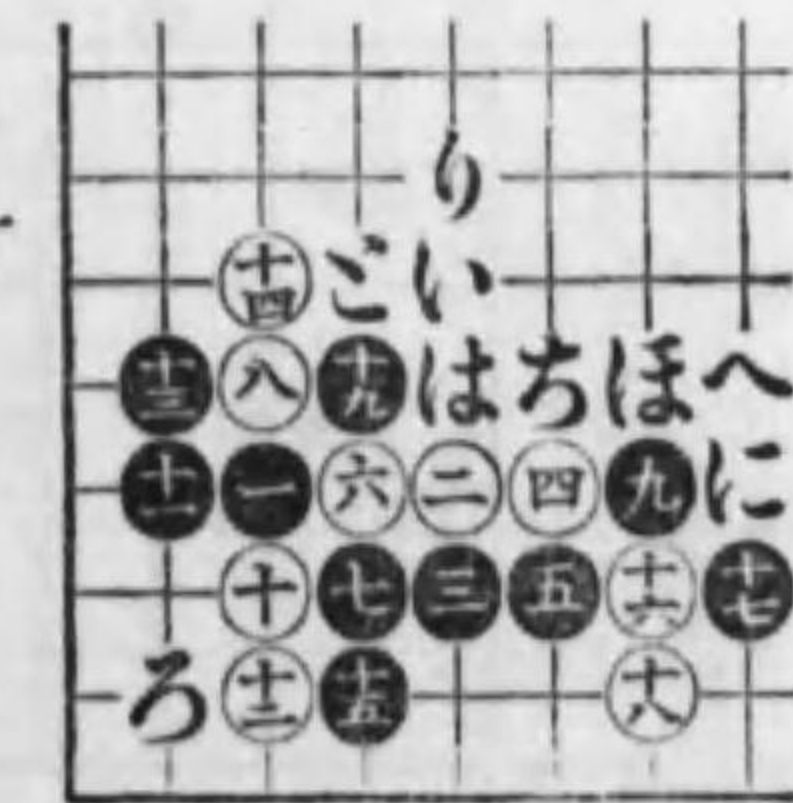 り
十四 ど い
十三 八 十九 は ち ほ へ
十一 一 六 二 四 九 に
十 七 三 五 十六 十七
ろ 十二 十五 十八